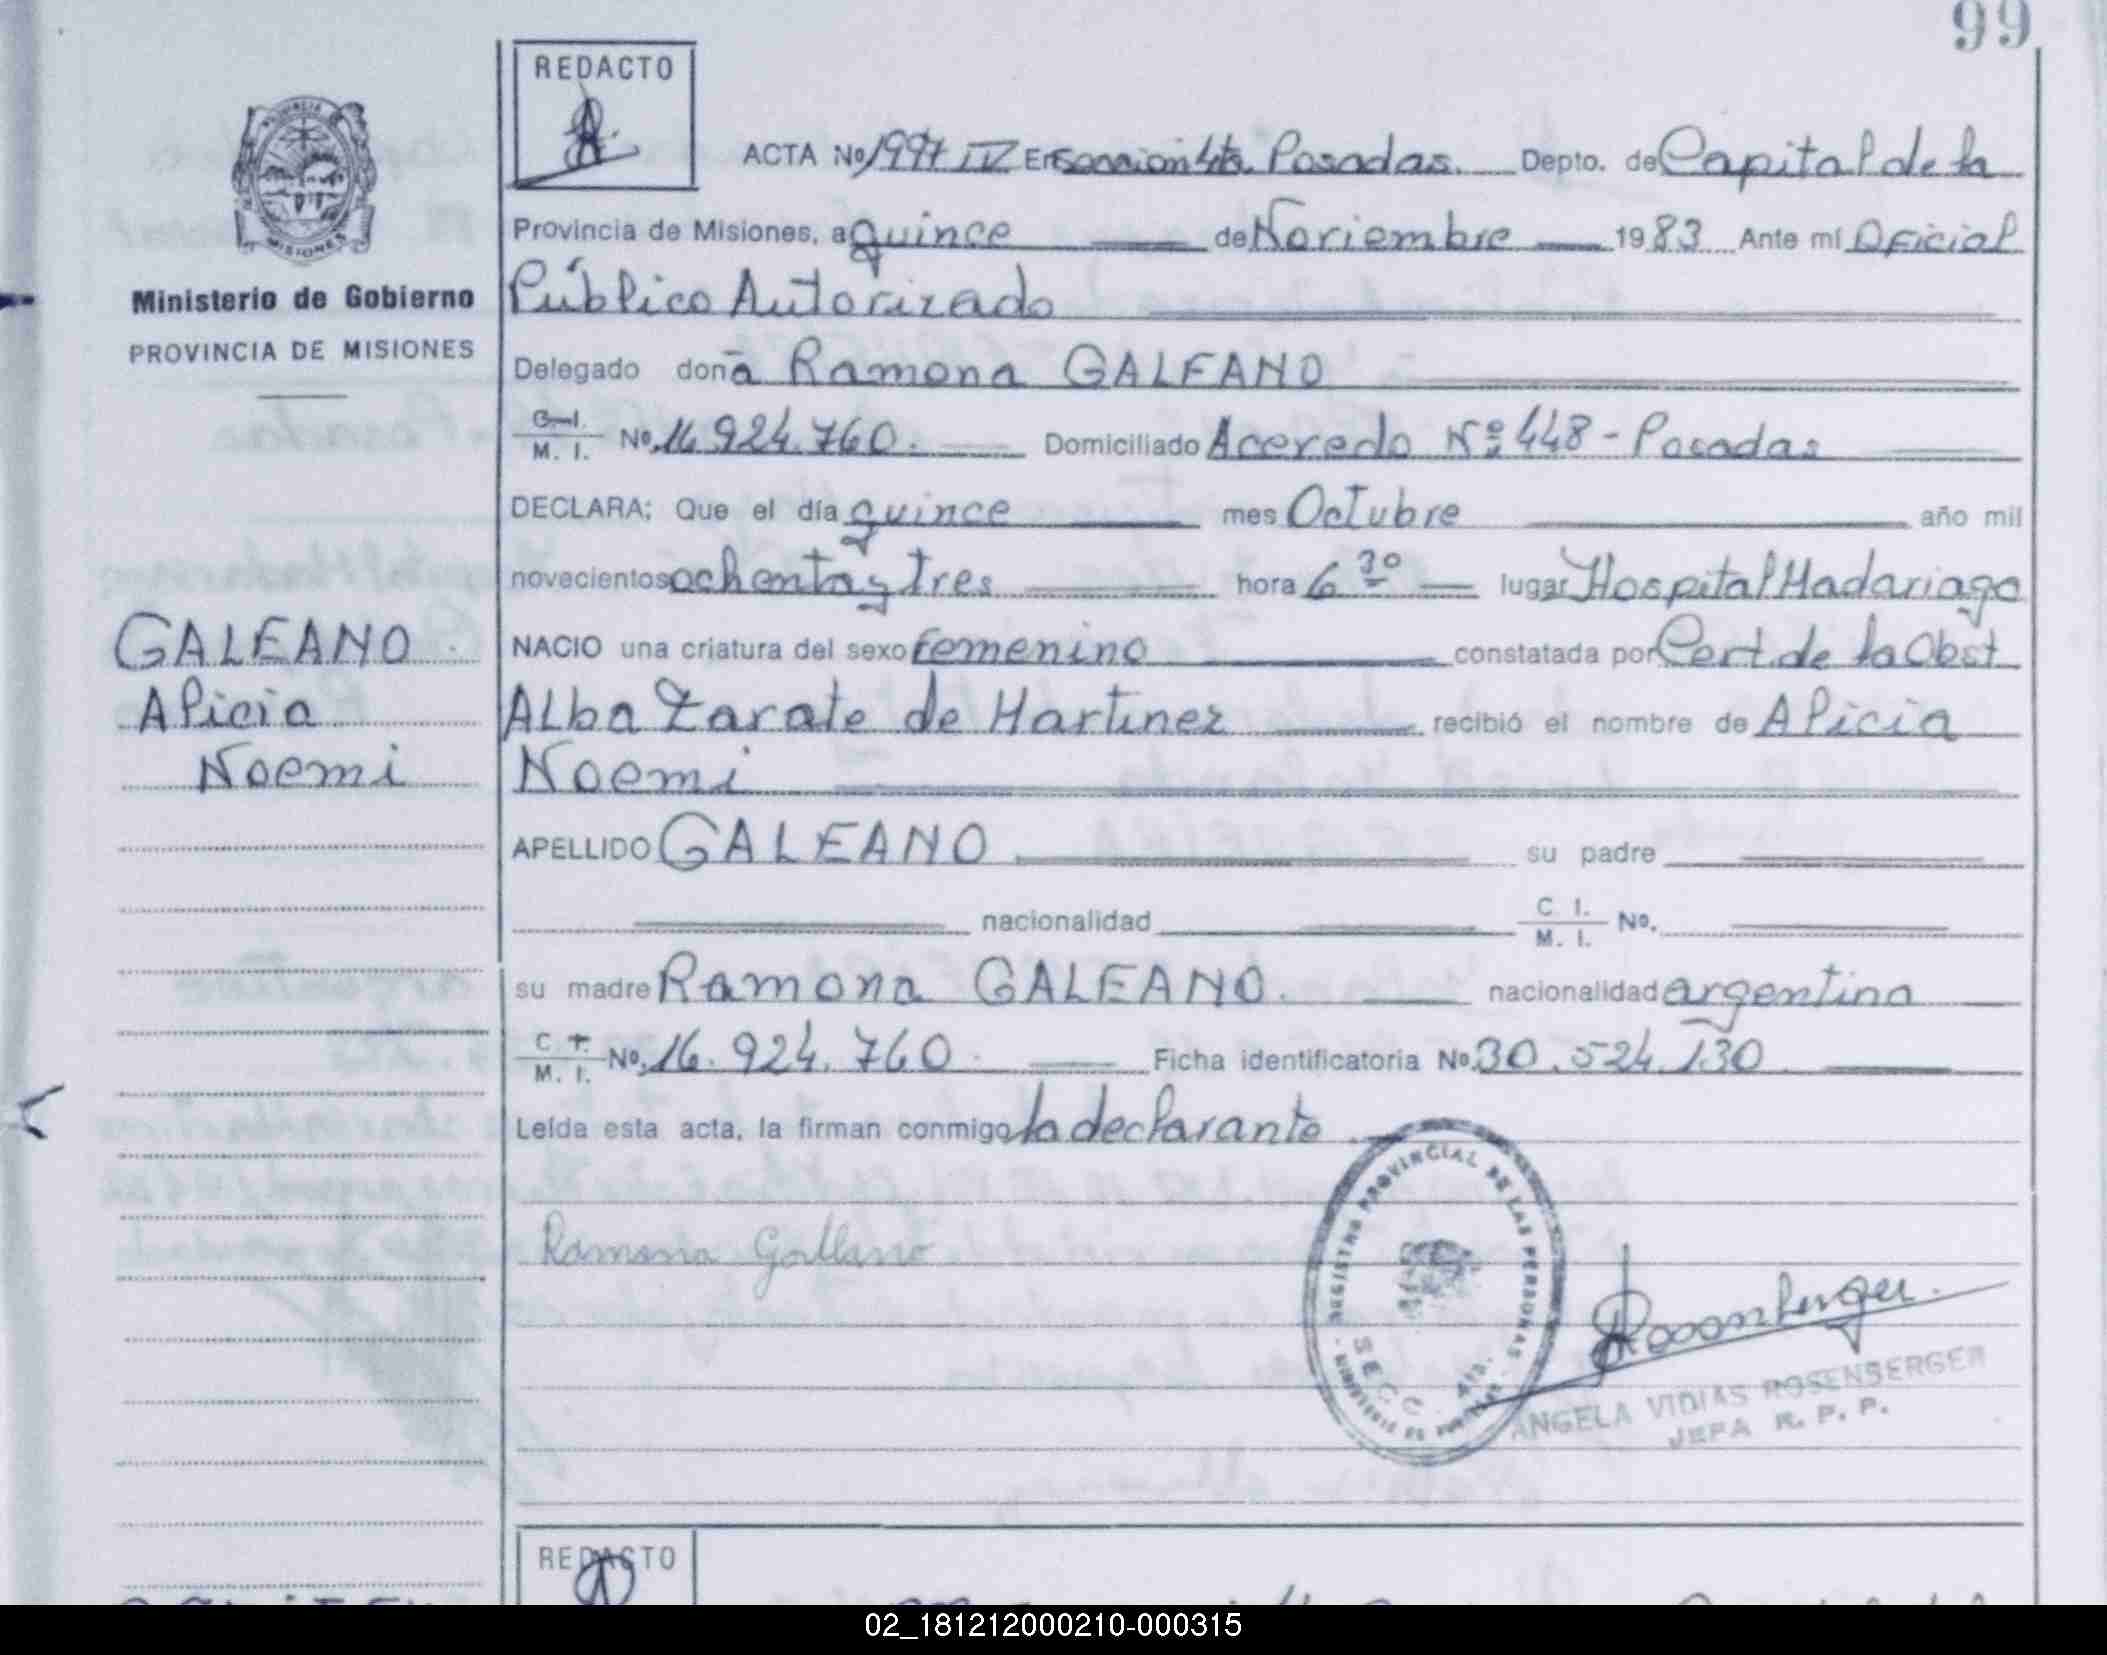 99
REDACTO
ACTA No 1997 IV En Sección 4ta. Posadas. Depto. de Capital de la
Provincia de Misiones, a quince de Noviembre 1983 Ante mí Oficial
Ministerio de Gobierno
PROVINCIA DE MISIONES
Público Autorizado
Delegado doña Ramona GALEANO
C. I. M. I. No. 16.924.760. Domiciliado Acevedo Nº 448 - Posadas
DECLARA: Que el día quince mes Octubre año mil
novecientos ochenta y tres hora 6 30 lugar Hospital Madariaga
GALEANO
Alicia
Noemi
NACIO una criatura del sexo femenino constatada por Cert. de la Obst
Alba Zarate de Martinez recibió el nombre de Alicia
Noemi
APELLIDO GALEANO su padre
nacionalidad C. I. M. I. No.
su madre Ramona GALEANO. nacionalidad argentina
C. I. M. I. No. 16.924.760. Ficha identificatoria No. 30.524.130
Leída esta acta, la firman conmigo la declarante.
Ramona Galeano
REGISTRO PROVINCIAL DE LAS PERSONAS
SECC. 4ta.
Rosenberger.
ANGELA VIDIAS ROSENBERGER
JEFA R. P. P.
REDACTO
02_181212000210-000315